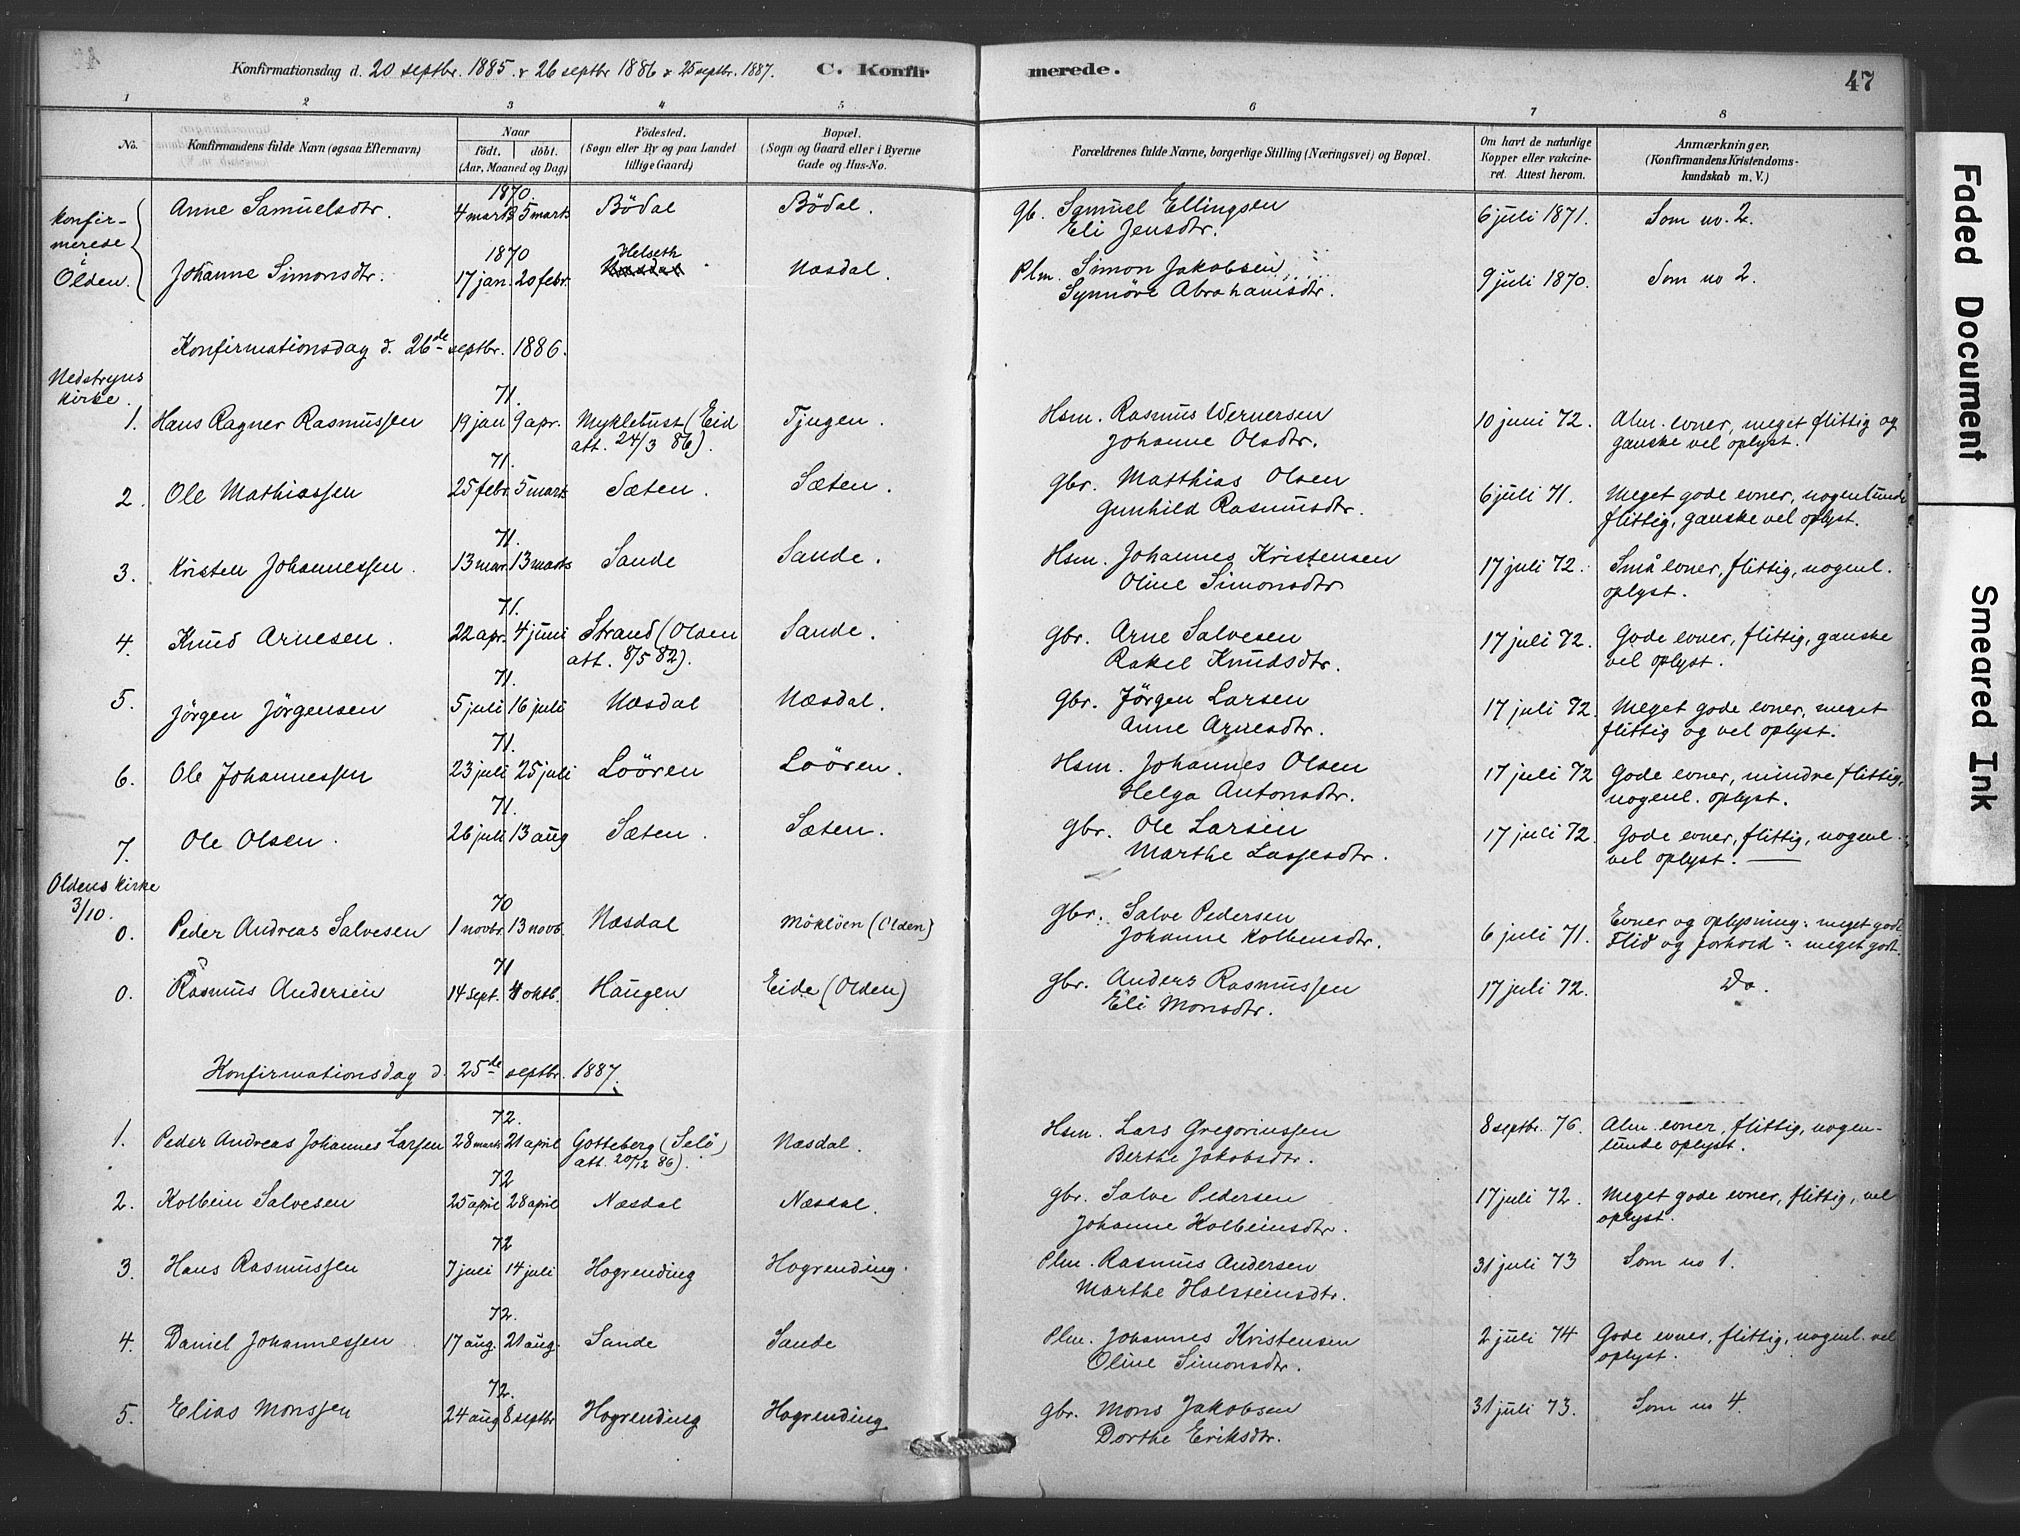 Konfirmationsdag d. 20 septbr. 1885 & 26 septbr 1886 & 25 septbr. 1887. C. Konfirmerede. 47
1 2 3 4 5 6 7 8
No. Konfirmandens fulde Navn (ogsaa Efternavn) Naar födt. döbt. (Aar, Maaned og Dag) Födested. (Sogn eller By og paa Landet tillige Gaard) Bopæl. (Sogn og Gaard eller i Byerne Gade og Hus-No. Forældrenes fulde Navne, borgerlige Stilling (Næringsvei) og Bopæl. Om havt de naturlige Kopper eller vakcineret. Attest herom. Anmærkninger. (Konfirmandens Kristendomskundskab m. V.)
konfirmerede i Olden.
1870.
Anne Samuelsdtr. 4 marts 5 marts Bödal Bödal. Gb. Samuel Ellingsen 6 juli 1871. Som no. 2.
Eli Jensdtr.
1870 Helseth
Johanne Simonsdtr. 17 jan. 20 febr. Næsdal Næsdal. Plm. Simon Jakobsen 9 juli 1870. Som no 2.
Synnöve Abrahamsdtr.
Konfirmationsdag d. 26de septbr. 1886.
Nedstryns kirke.
71.
1. Hans Ragner Rasmussen 19 jan 9 apr. Myklebust (Eid Tjugen. Hsm. Rasmus Wernersen 10 juni 72. Alm. evner, meget flittig og
att. 24/3 86). Johanne Olsdtr. ganske vel oplyst.
71.
2. Ole Mathiassen 25 febr. 5 marts Sæten. Sæten. Gbr. Matthias Olsen 6 juli 71. Meget gode evner, nogenlunde
Gunhild Rasmusdtr. flittig, ganske vel oplyst.
71.
3. Kristen Johannessen. 13 mar. 13 marts Sande Sande. Hsm. Johannes Kristensen 17 juli 72. Små evner, flittig, nogenl.
Oline Simonsdtr oplyst.
71.
4. Knud Arnesen. 22 apr. 4 juni Strand (Olden Sande. Gbr. Arne Salvesen 17 juli 72. Gode evner, flittig, ganske
att. 8/5 82). Rakel Knudsdtr. vel oplyst.
71.
5. Jörgen Jörgensen 5 juli 16 juli Næsdal Næsdal. Gbr. Jörgen Larsen 17 juli 72. Meget gode evner, meget
Anne Arnesdtr. flittig og vel oplyst.
71.
6. Ole Johannessen 23 juli 25 juli Loören Loören. Hsm. Johannes Olsen 17 juli 72 Gode evner, mindre flittig,
Helga Antonsdtr. nogenl. oplyst.
71.
7. Ole Olsen. 26 juli 13 aug Sæten. Sæten. Gbr. Ole Larsen 17 juli 72. Gode evner, flittig, nogenl.
Marthe Lassesdtr. vel oplyst.
Oldens kirke 3/10.
70
0. Peder Andreas Salvesen 1 novbr. 13 novb. Næsdal Möklöen (Olden) Gbr. Salve Pedersen 6 juli 71. Evner og oplysning: meget gode
Johanne Kolbensdtr. Flid og forhold: meget godt.
71
0. Rasmus Andersen 14 sept. 4 oktb. Haugen Eide (Olden) Gbr. Anders Rasmussen 17 juli 72. Do.
Eli Monsdtr.
Konfirmationsdag d. 25de septbr. 1887.
72.
1. Peder Andreas Johannes Larsen 28 marts 21 april Gotteberg (Selö) Næsdal. Hsm. Lars Gregoriussen 8 septbr. 76. Alm. evner, flittig, nogen-
att. 20/12 86). Berthe Jakobsdtr. lunde oplyst.
72
2. Kolbein Salvesen 25 april 28 april Næsdal Næsdal. Gbr. Salve Pedersen 17 juli 72. Meget gode evner, flittig, vel
Johanne Kolbeinsdtr. oplyst.
72
3. Hans Rasmussen 7 juli 14 juli Hogrending Hogrending. Plm. Rasmus Andersen 31 juli 73 Som no 1.
Marthe Holsteinsdtr.
72.
4. Daniel Johannessen 17 aug. 21 aug. Sande Sande Plm. Johannes Kristensen 2 juli 74 Gode evner, flittig, nogenl. vel
Oline Simonsdtr. oplyst.
72.
5. Elias Monssen 24 aug 8 septbr Hogrending Hogrending Gbr. Mons Jakobsen 31 juli 73. Som no 4.
Dorthe Eriksdtr.
Faded Document
Smeared Ink